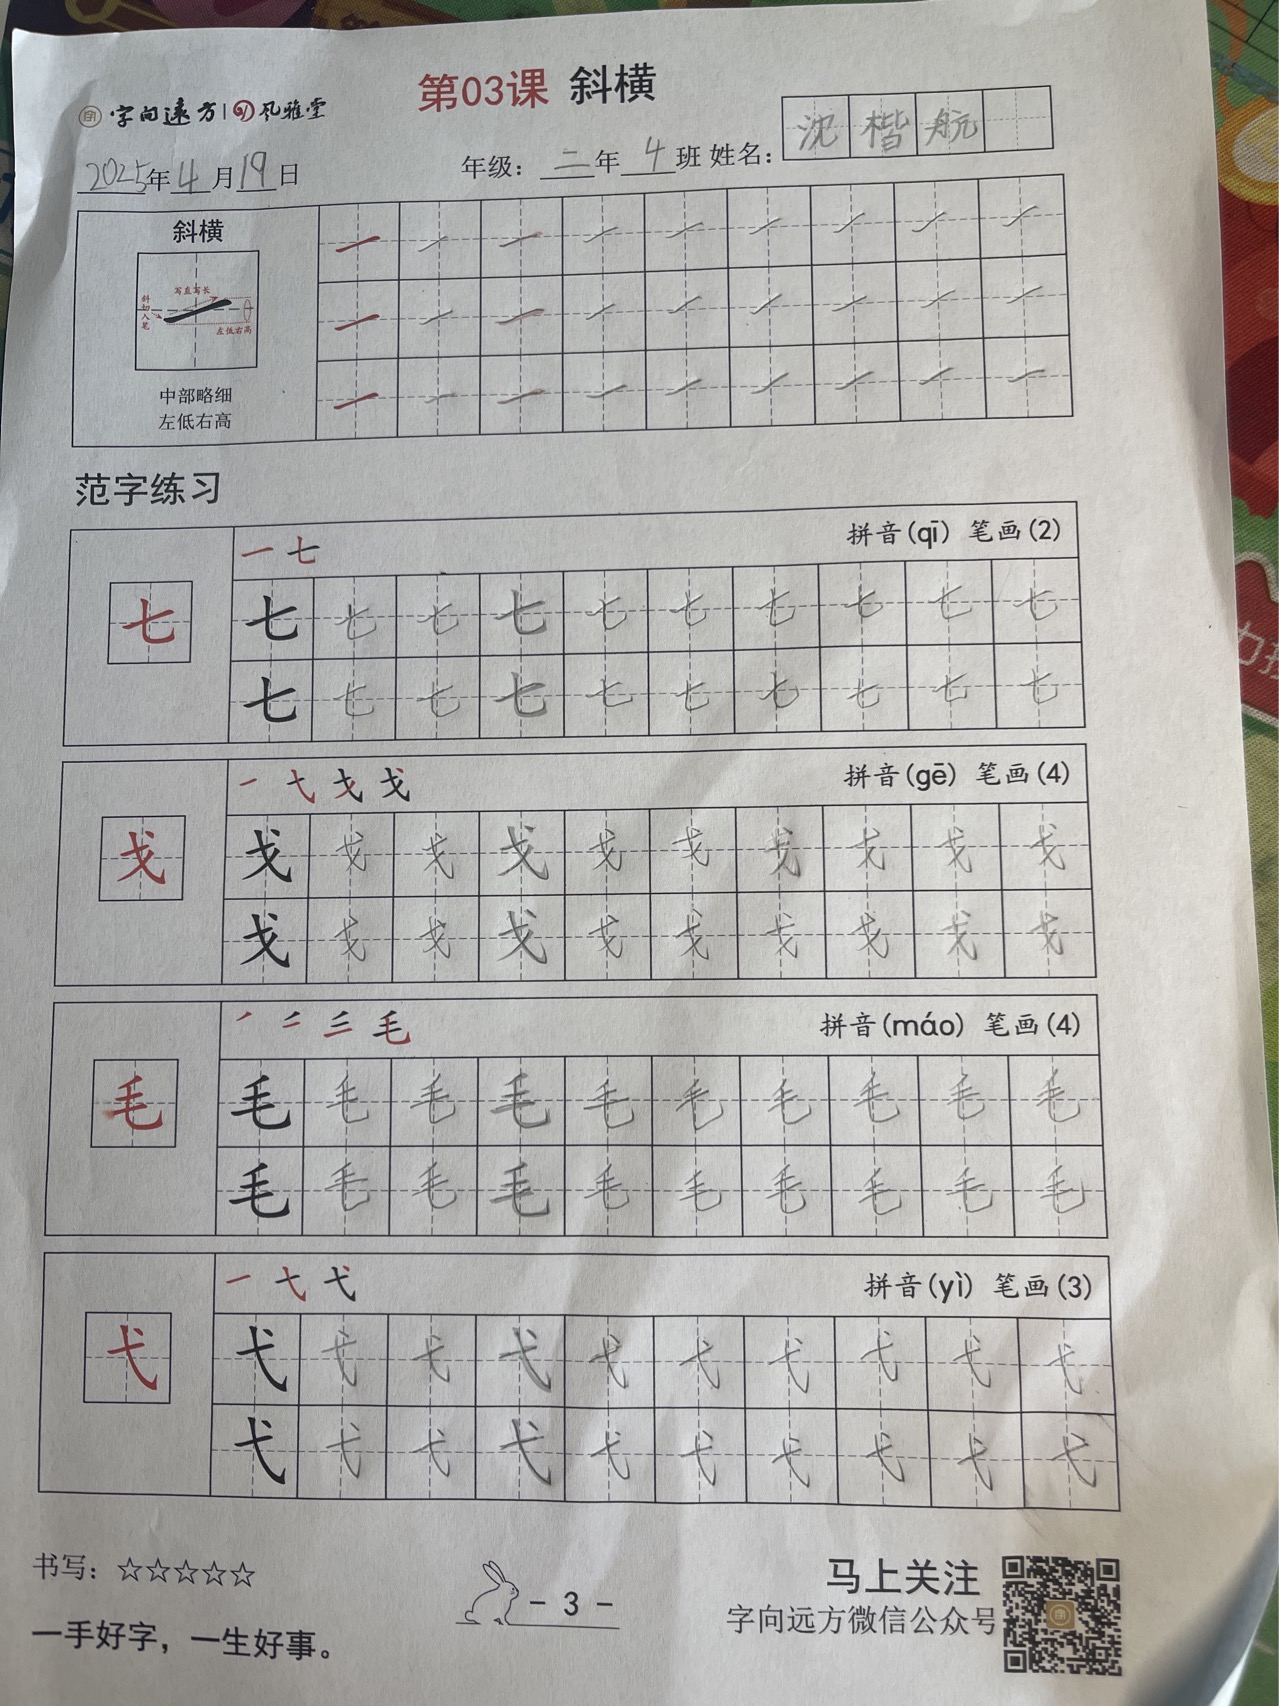 第03课 斜横
字向远方 风雅堂
2025年4月19日 年级：二年4班 姓名：沈楷航
斜横
写直写长
斜切入笔
左低右高
中部略细
左低右高
范字练习
拼音(qī) 笔画(2)
七 七 七 七 七 七 七 七 七 七 七
七 七 七 七 七 七 七 七 七 七
拼音(gē) 笔画(4)
戈 戈 戈 戈 戈 戈 戈 戈 戈 戈 戈
戈 戈 戈 戈 戈 戈 戈 戈 戈 戈
拼音(máo) 笔画(4)
毛 毛 毛 毛 毛 毛 毛 毛 毛 毛 毛
毛 毛 毛 毛 毛 毛 毛 毛 毛 毛
拼音(yì) 笔画(3)
弋 弋 弋 弋 弋 弋 弋 弋 弋 弋 弋
弋 弋 弋 弋 弋 弋 弋 弋 弋 弋
书写：☆☆☆☆☆
一手好字，一生好事。
- 3 -
马上关注
字向远方微信公众号